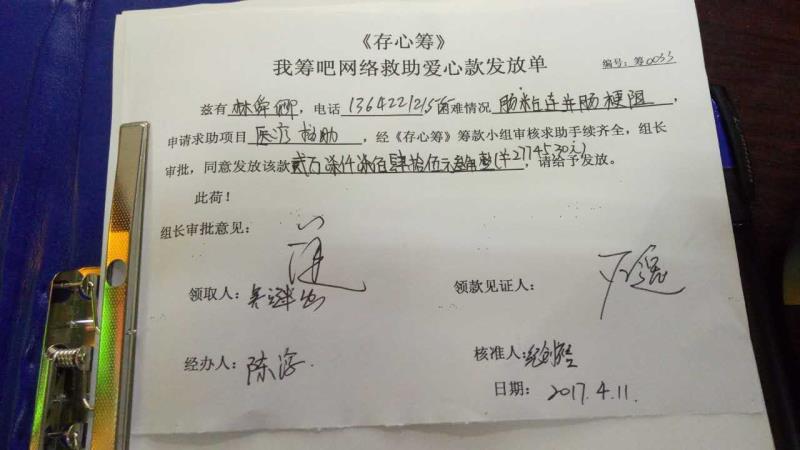 《存心筹》
我筹吧网络救助爱心款发放单
编号：筹0033
兹有 林舜卿，电话 13642212155 困难情况 肠粘连并肠梗阻，
申请求助项目 医疗救助，经《存心筹》筹款小组审核求助手续齐全，组长
审批，同意发放该款 贰万柒仟柒佰肆拾伍元叁角整(¥27745.30元)，请给予发放。
此荷！
组长审批意见：
领取人：
领款见证人：
经办人：陈海
核准人：
日期：2017.4.11.